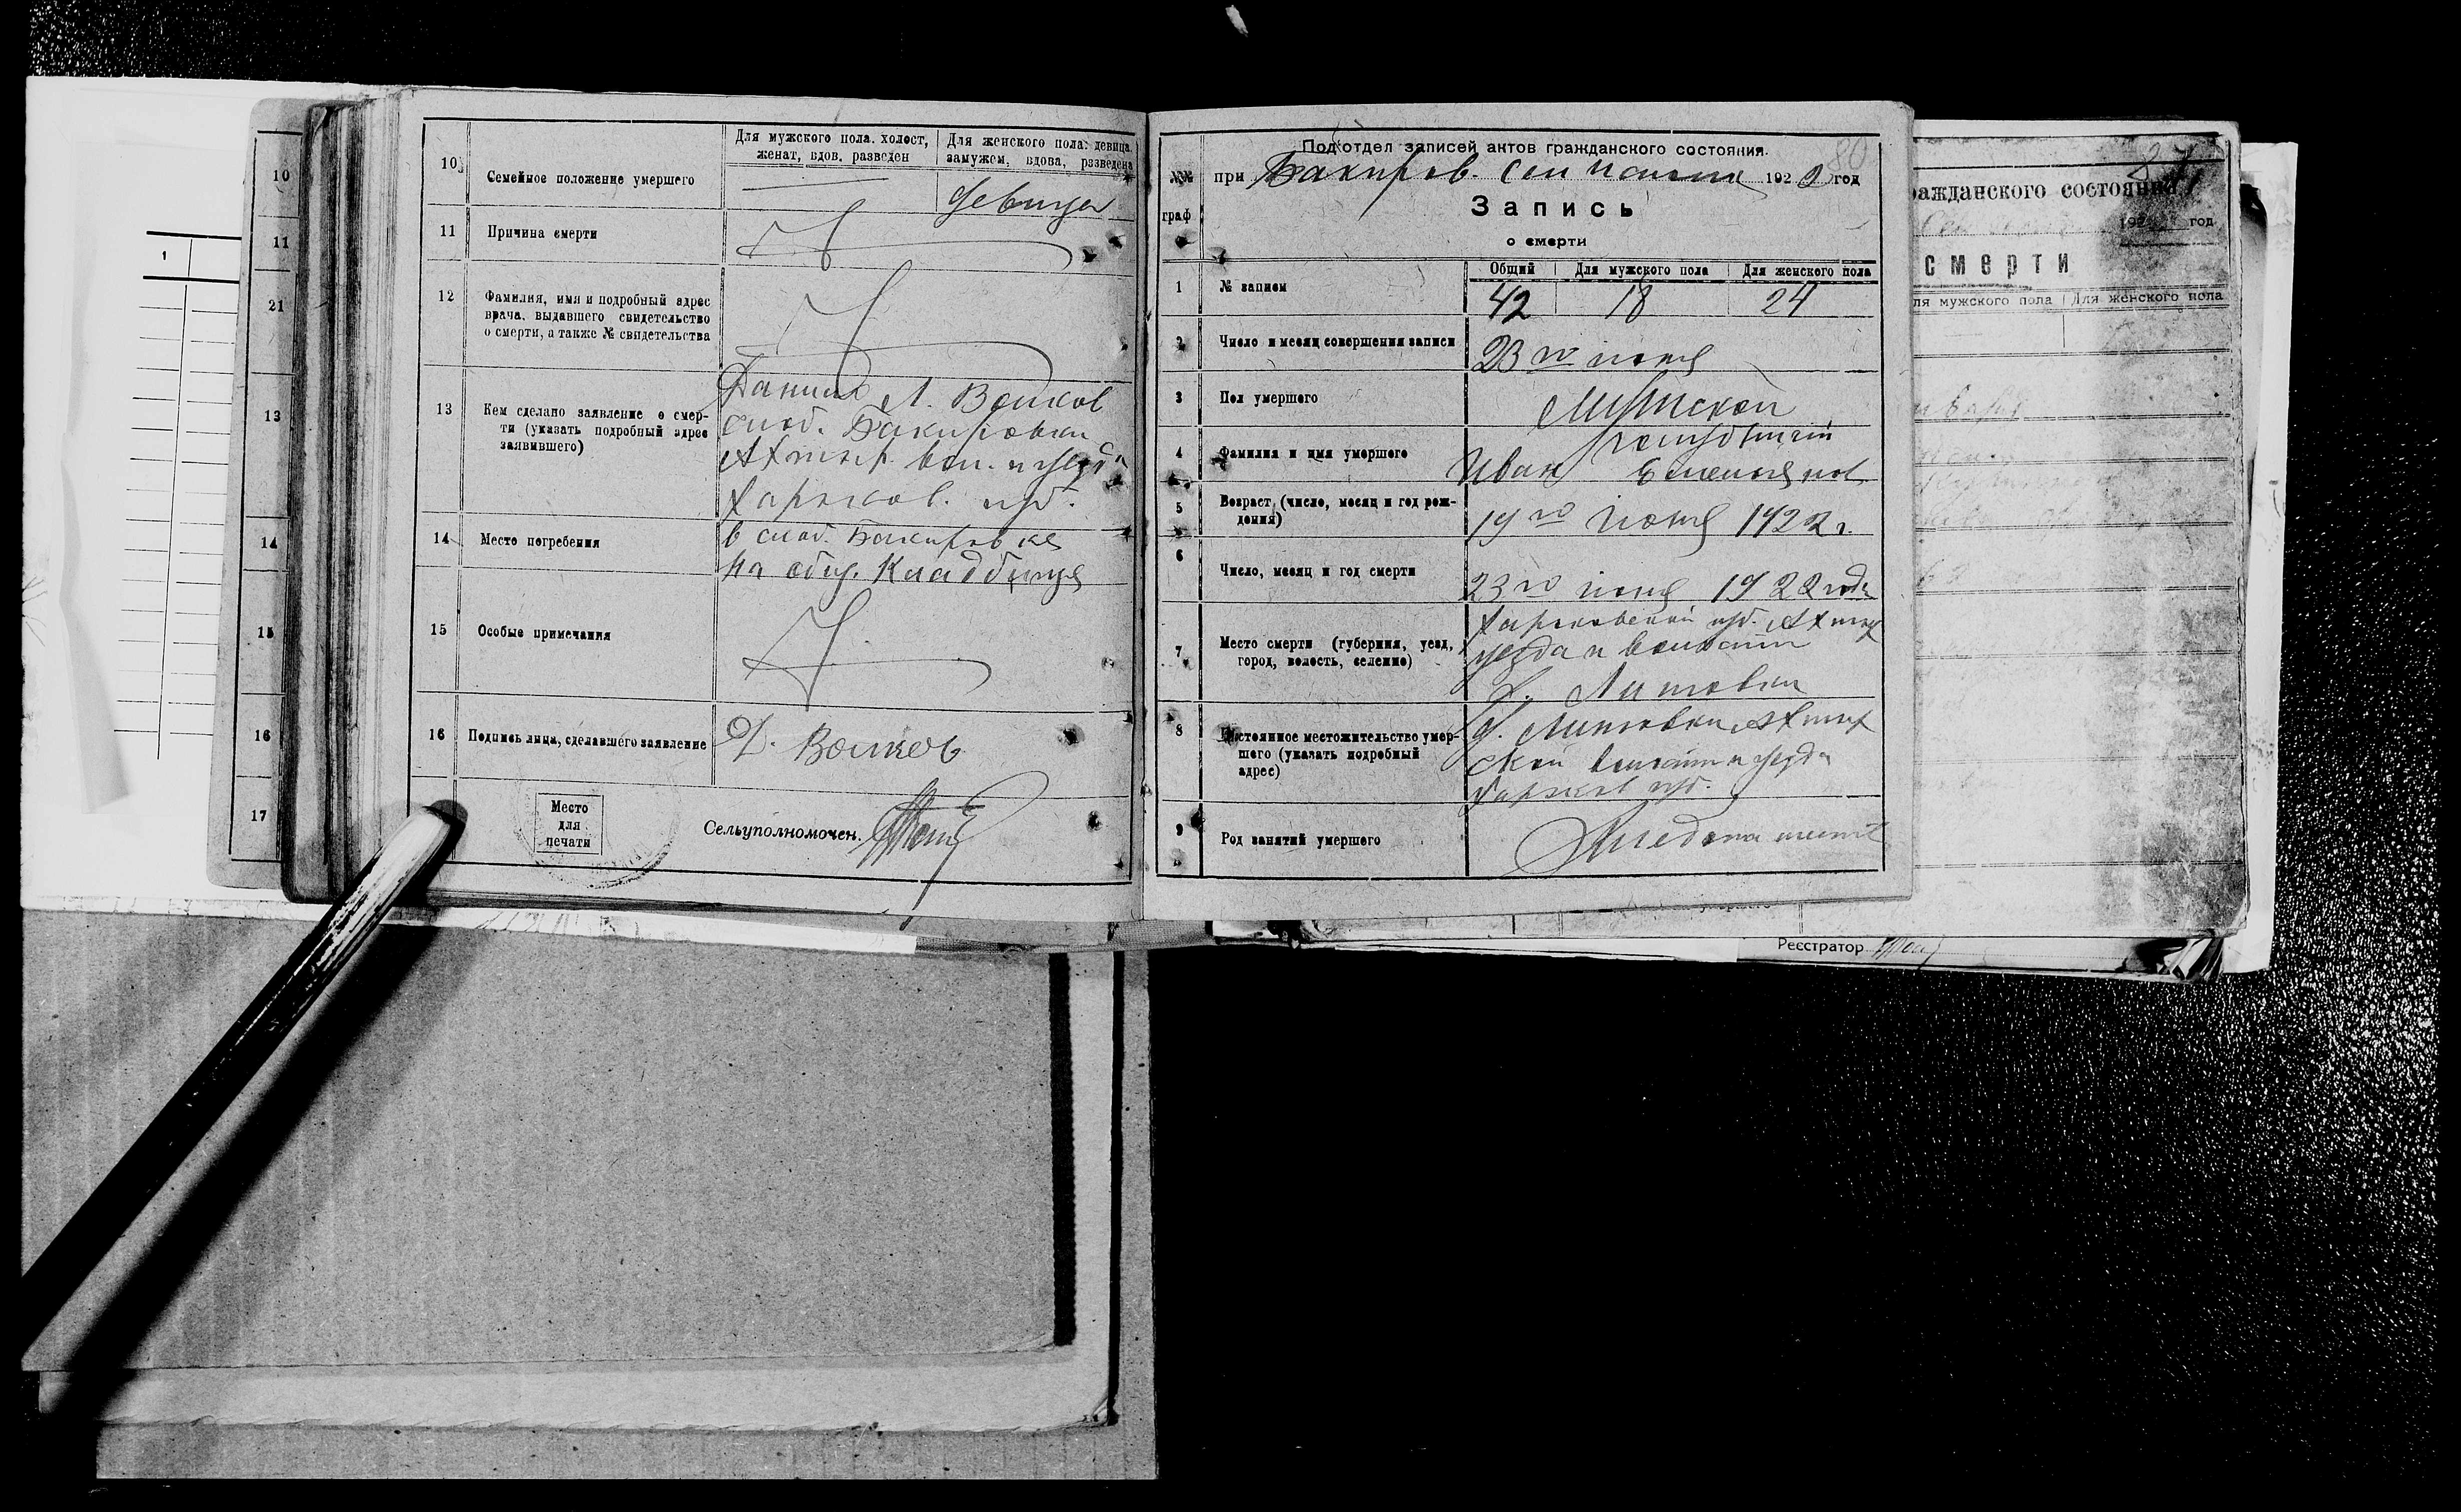 10
11
21
13
14
15
16
17
1
10
Семейное положение умершего
Для мужского пола. холост,
женат, вдов. разведен
Для женского пола: девица,
замужем, вдова, разведена
девица
11
Причина смерти
12
Фамилия, имя и подробный адрес
врача, выдавшего свидетельство
о смерти, а также № свидетельства
13
Кем сделано заявление о смер-
ти (указать подробный адрес
заявившего)
Данило Л. Волков
слоб. Бакировки
Ахтыр. вол. и уезда
Харьков. губ.
14
Место погребения
в слоб. Бакировке
на общ. Кладбище
15
Особые примечания
16
Подпись лица, сделавшего заявление
Д. Волков
Место
для
печати
Сельуполномочен.
80
Подотдел записей актов гражданского состояния.
№№
граф
при Бакиров. Сел 1922 год
Запись
о смерти
1
№ записи
Общий
Для мужского пола
Для женского пола
42
18
24
2
Число и месяц совершения записи
23 го июня
3
Пол умершого
Мужской
4
Фамилия и имя умершого
Иван
5
Возраст (число, месяц и год рож-
дения)
19 го июня 1922 г.
6
Число, месяц и год смерти
23 го июня 1922 года
7
Место смерти (губерния, уезд,
город, волость, селение)
Харьковской губ. Ахтыр
уезда и волости
Х. Литовка
8
Постоянное местожительство умер-
шого (указать подробный
адрес)
Х. Литовка, Ахтыр
ской волости и уезда
Харьков губ.
9
Род занятий умершего
ражданского состояния
192 год
смерти
ля мужского пола
Для женского пола
Реєстратор